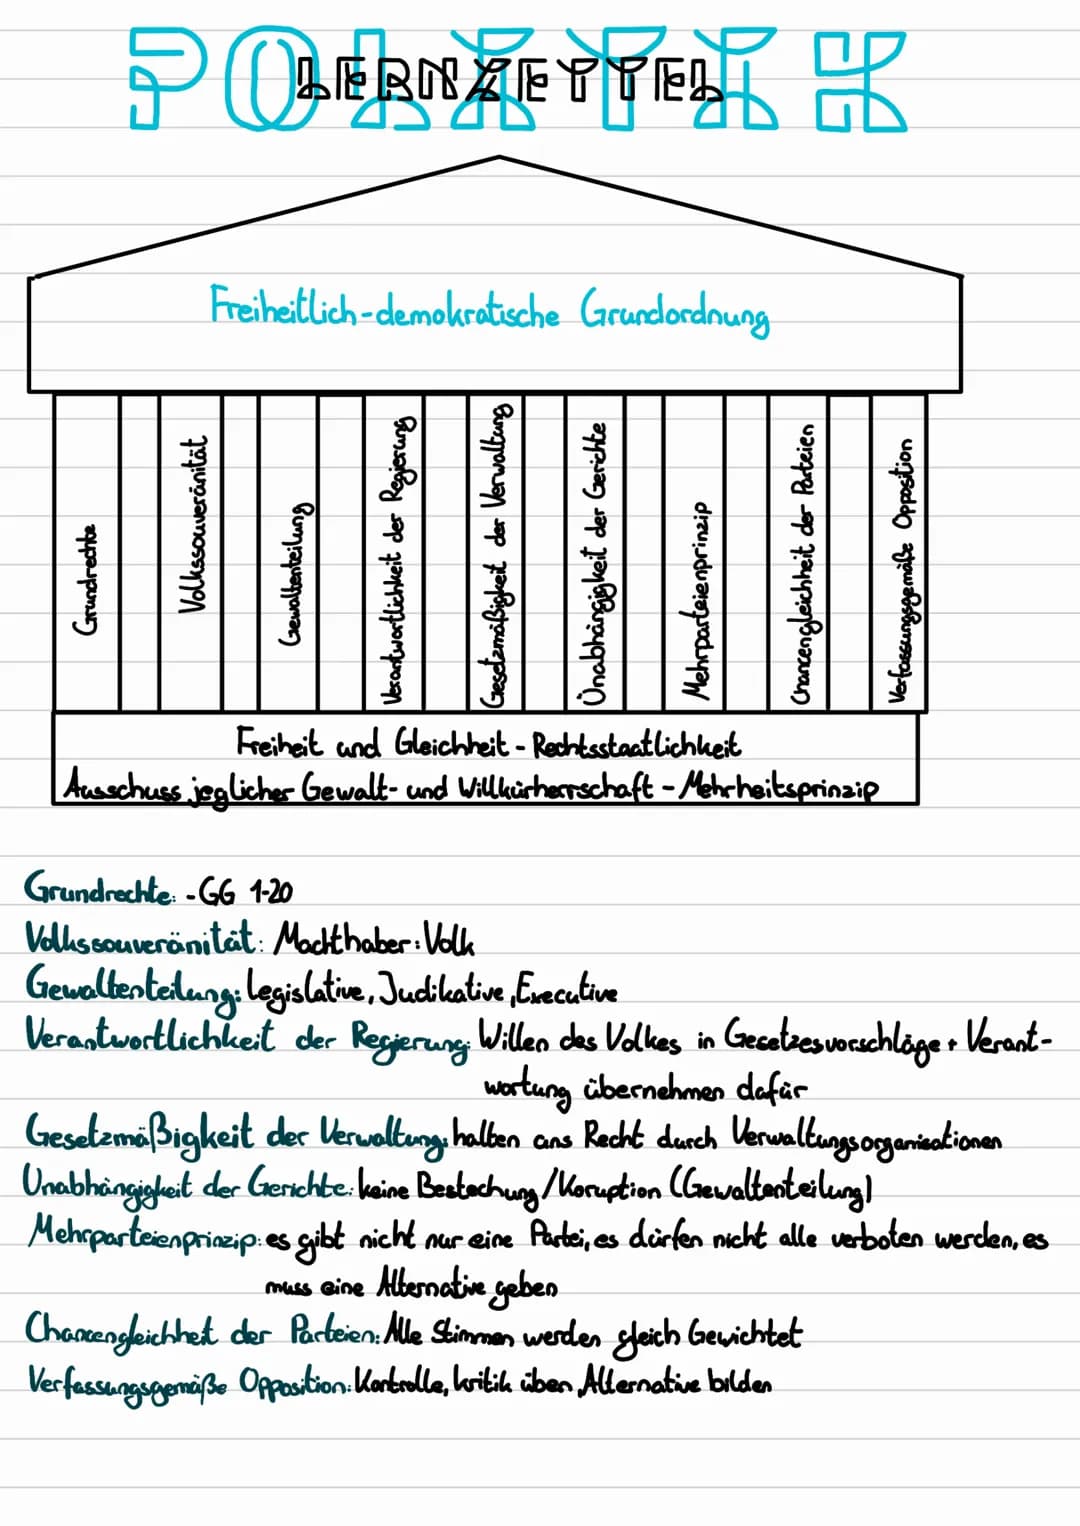 POLITIK
LERNZETTEL
Freiheitlich-demokratische Grundordnung
Grundrechte
Volkssouveränität
Gewaltenteilung
Verantwortlichkeit der Regierung
Gesetzmäßigkeit der Verwaltung
Unabhängigkeit der Gerichte
Mehrparteienprinzip
Chancengleichheit der Parteien
Verfassungsgemäße Opposition
Freiheit und Gleichheit - Rechtsstaatlichkeit
Ausschuss jeglicher Gewalt- und Willkürherrschaft - Mehrheitsprinzip
Grundrechte: - GG 1-20
Volkssouveränität: Machthaber: Volk
Gewaltenteilung: Legislative, Judikative, Executive
Verantwortlichkeit der Regierung: Willen des Volkes in Gesetzesvorschläge + Verant-
wortung übernehmen dafür
Gesetzmäßigkeit der Verwaltung: halten ans Recht durch Verwaltungsorganisationen
Unabhängigkeit der Gerichte: keine Bestechung/Koruption (Gewaltenteilung)
Mehrparteienprinzip: es gibt nicht nur eine Partei, es dürfen nicht alle verboten werden, es
muss eine Alternative geben
Chancengleichheit der Parteien: Alle Stimmen werden gleich Gewichtet
Verfassungsgemäße Opposition: Kontrolle, kritik üben, Alternative bilden